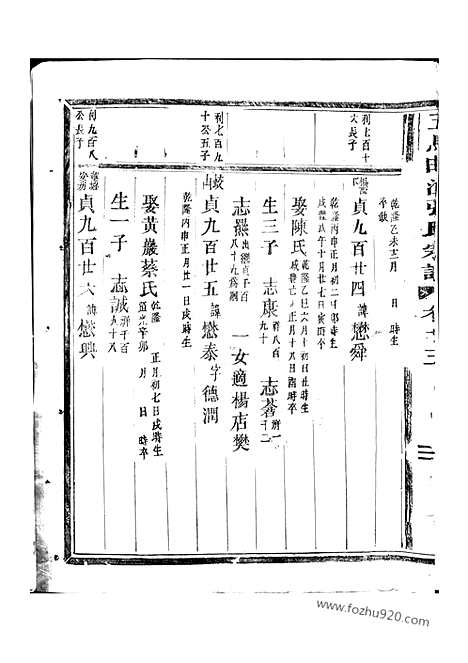 五馬曲江張氏宗譜 卷廿三
乾隆乙未十二月 日 時生
卒缺
利七百十
大長子
貞九百廿四 諱懋舜
乾隆丙申正月初二
咸豐 年十月廿七日寅時卒
娶陳氏 乾隆乙巳六月十初日 時生
咸豐 正月十八日酉時卒
生三子 志康 祥八百九十 志茗 祥一千二
志羆 出繼貞千百八十九為嗣 一女適楊店樊
利七百九
十公五子
貞九百廿五 諱懋泰字德潤
乾隆丙申正月廿一日戌時生
娶黃巖蔡氏 乾隆 正月初七日戌時生
道光辛卯 月 日 時卒
生一子 志誠 祥千百九十八
利九百八
公長子
貞九百廿六 諱懋興
www.fozhu920.com